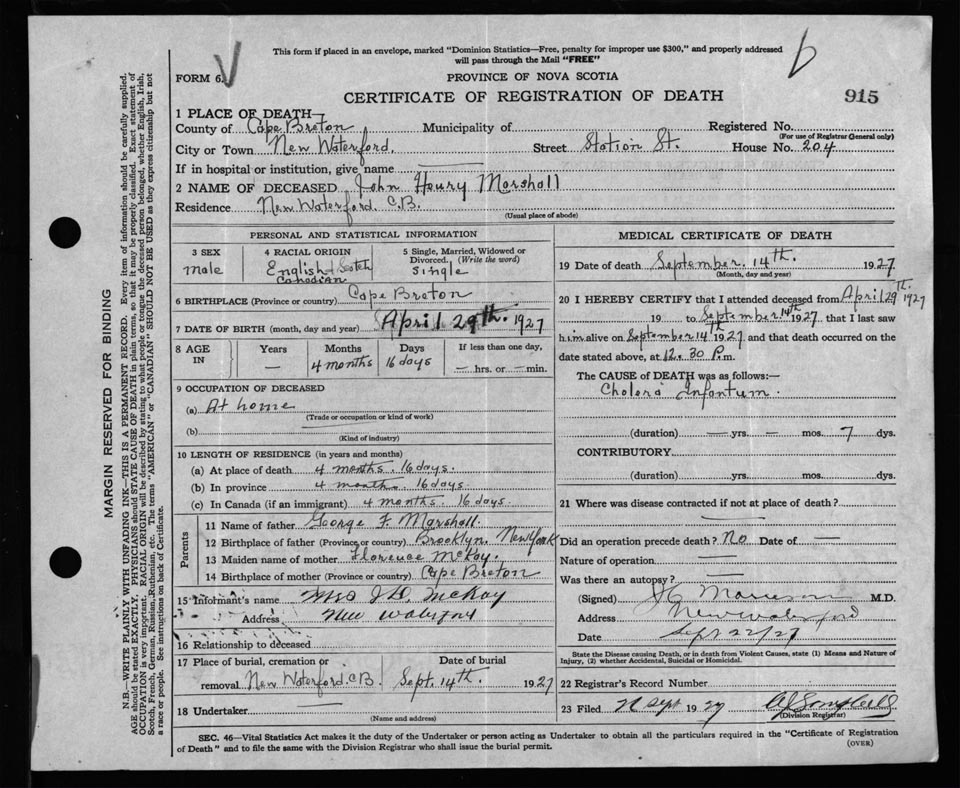 This form if placed in an envelope, marked "Dominion Statistics—Free, penalty for improper use $300," and properly addressed
will pass through the Mail "FREE"
FORM 6.
PROVINCE OF NOVA SCOTIA
CERTIFICATE OF REGISTRATION OF DEATH
915
1 PLACE OF DEATH—
County of Cape Breton Municipality of Registered No.
(For use of Registrar General only)
City or Town New Waterford. Street Station St. House No. 204
If in hospital or institution, give name
2 NAME OF DECEASED John Henry Marshall
Residence New Waterford. C.B.
(Usual place of abode)
PERSONAL AND STATISTICAL INFORMATION
3 SEX male
4 RACIAL ORIGIN English & Scotch Canadian
5 Single, Married, Widowed or Divorced. (Write the word) Single
6 BIRTHPLACE (Province or country) Cape Breton
7 DATE OF BIRTH (month, day and year) April 29th. 1927
8 AGE IN Years — Months 4 months Days 16 days If less than one day, — hrs. or — min.
9 OCCUPATION OF DECEASED
(a) At home
(Trade or occupation or kind of work)
(b)
(Kind of industry)
10 LENGTH OF RESIDENCE (in years and months)
(a) At place of death 4 months. 16 days.
(b) In province 4 months. 16 days.
(c) In Canada (if an immigrant) 4 months. 16 days.
Parents
11 Name of father George F. Marshall.
12 Birthplace of father (Province or country) Brooklyn. New York
13 Maiden name of mother Florence McKay.
14 Birthplace of mother (Province or country) Cape Breton
15 Informant's name Mrs J D McKay
Address New Waterford
16 Relationship to deceased
17 Place of burial, cremation or Date of burial
removal New Waterford. C.B. Sept. 14th. 1927
18 Undertaker
(Name and address)
MEDICAL CERTIFICATE OF DEATH
19 Date of death September. 14th. 1927
(Month, day and year)
20 I HEREBY CERTIFY that I attended deceased from April 29th 1927
19 to September 14th 1927, that I last saw
him alive on September 14th 1927 and that death occurred on the
date stated above, at 12.30 P.m.
The CAUSE of DEATH was as follows:—
Cholera Infantum.
(duration) — yrs. — mos. 7 dys.
CONTRIBUTORY
(duration) yrs. mos. dys.
21 Where was disease contracted if not at place of death?
Did an operation precede death? No Date of —
Nature of operation
Was there an autopsy?
(Signed) M.D.
Address New Waterford
Date Sept 22/27
State the Disease causing Death, or in death from Violent Causes, state (1) Means and Nature of
Injury, (2) whether Accidental, Suicidal or Homicidal.
22 Registrar's Record Number
23 Filed Sept 1927
(Division Registrar)
SEC. 46—Vital Statistics Act makes it the duty of the Undertaker or person acting as Undertaker to obtain all the particulars required in the "Certificate of Registration
of Death" and to file the same with the Division Registrar who shall issue the burial permit.
(OVER)
MARGIN RESERVED FOR BINDING
N.B.—WRITE PLAINLY WITH UNFADING INK—THIS IS A PERMANENT RECORD. Every item of information should be carefully supplied.
AGE should be stated EXACTLY. PHYSICIANS should STATE CAUSE OF DEATH in plain terms, so that it may be properly classified. Exact statement of
OCCUPATION is very important. RACIAL ORIGIN will be described by stating to what people or tongue the deceased person belonged, whether English, Irish,
Scotch, French, German, Russian, Ruthenian, etc. The terms "AMERICAN" or "CANADIAN" SHOULD NOT BE USED as they express citizenship but not
a race or people. See instructions on back of Certificate.